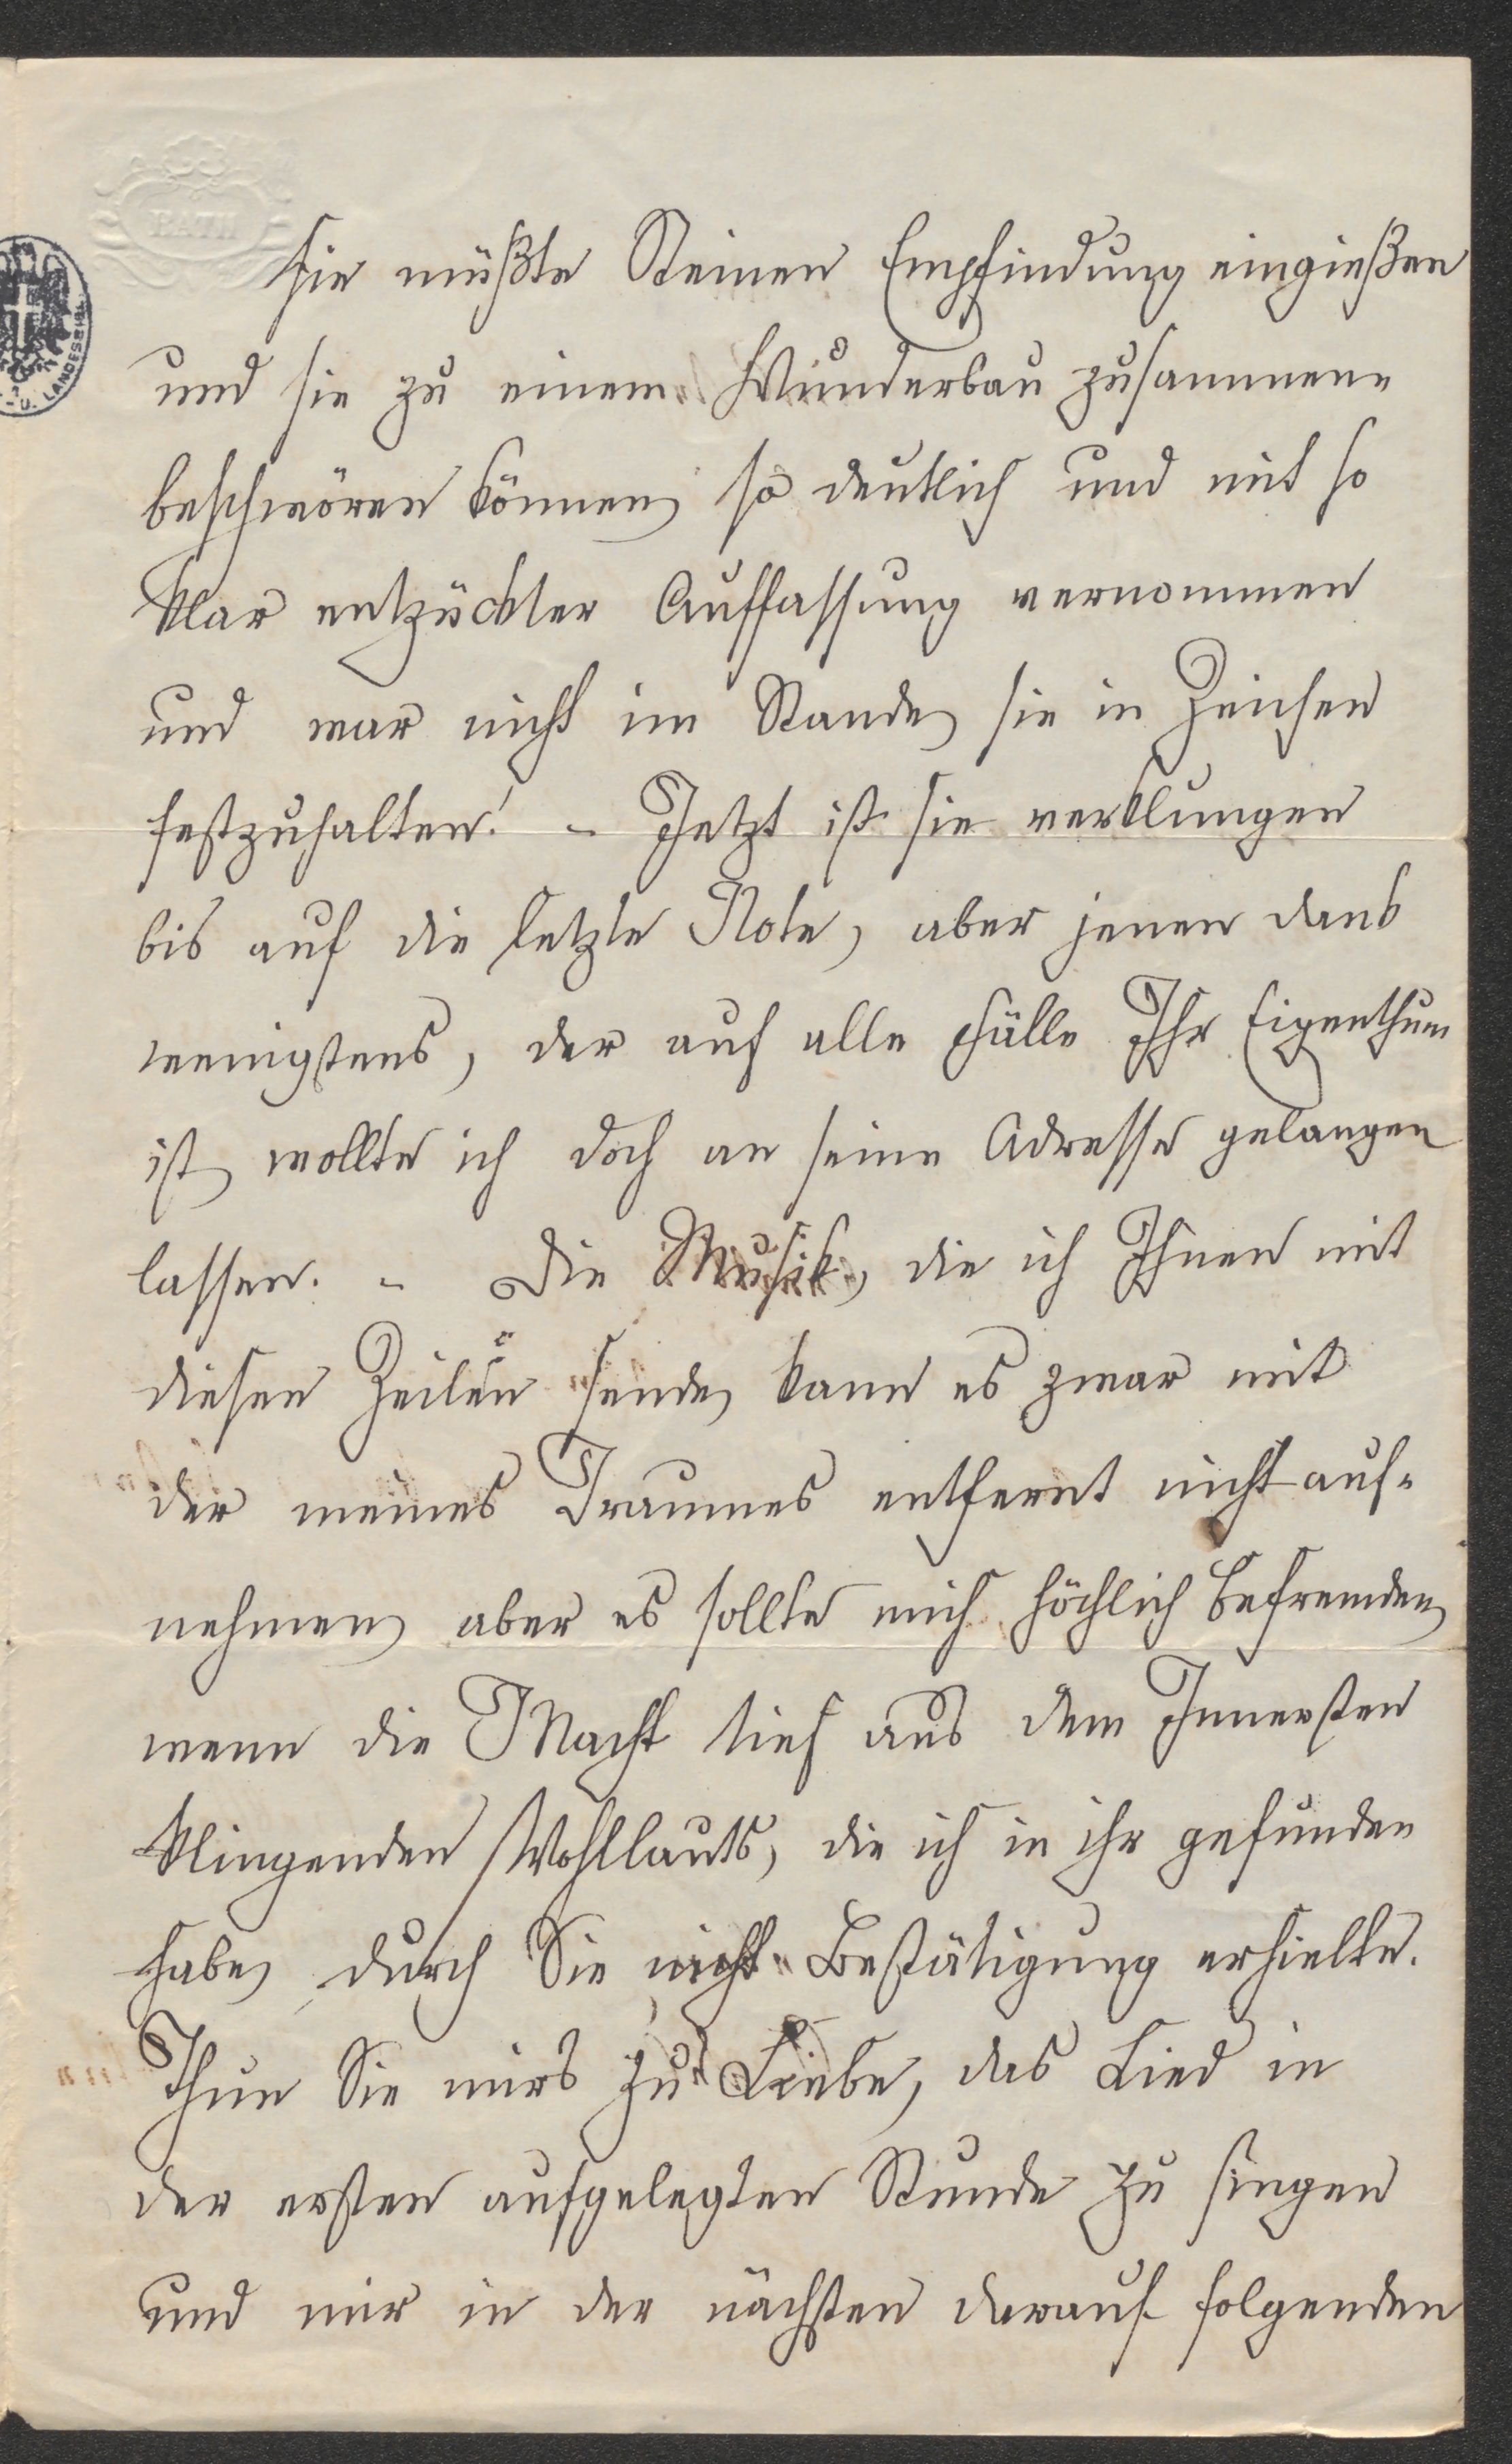 BATH
U. LANDESBIBL.
sie müßte Steinen Empfindung eingießen
und sie zu einem Wunderbau zusammen-
beschwören können, so deutlich und mit so
klar entzückter Auffassung vernommen
und war nicht im Stande, sie in Zeichen
festzuhalten! – Jetzt ist sie verklungen
bis auf die letzte Note, aber jenen Dank
wenigstens, der auf alle Fälle Ihr Eigenthum
ist, wollte ich doch an seine Adresse gelangen
lassen. – Die Musik, die ich Ihnen mit
diesen Zeilen sende, kann es zwar mit
der meines Traumes entfernt nicht auf-
nehmen, aber es sollte mich höchlich befremden,
wenn die Macht tief aus dem Innersten
klingenden Wohllauts, die ich in ihr gefunden
habe, durch Sie nicht Bestätigung erhielte.
Thun Sie mirs zu Liebe, das Lied in
der ersten aufgelegten Stunde zu singen
und mir in der nächsten darauf folgenden